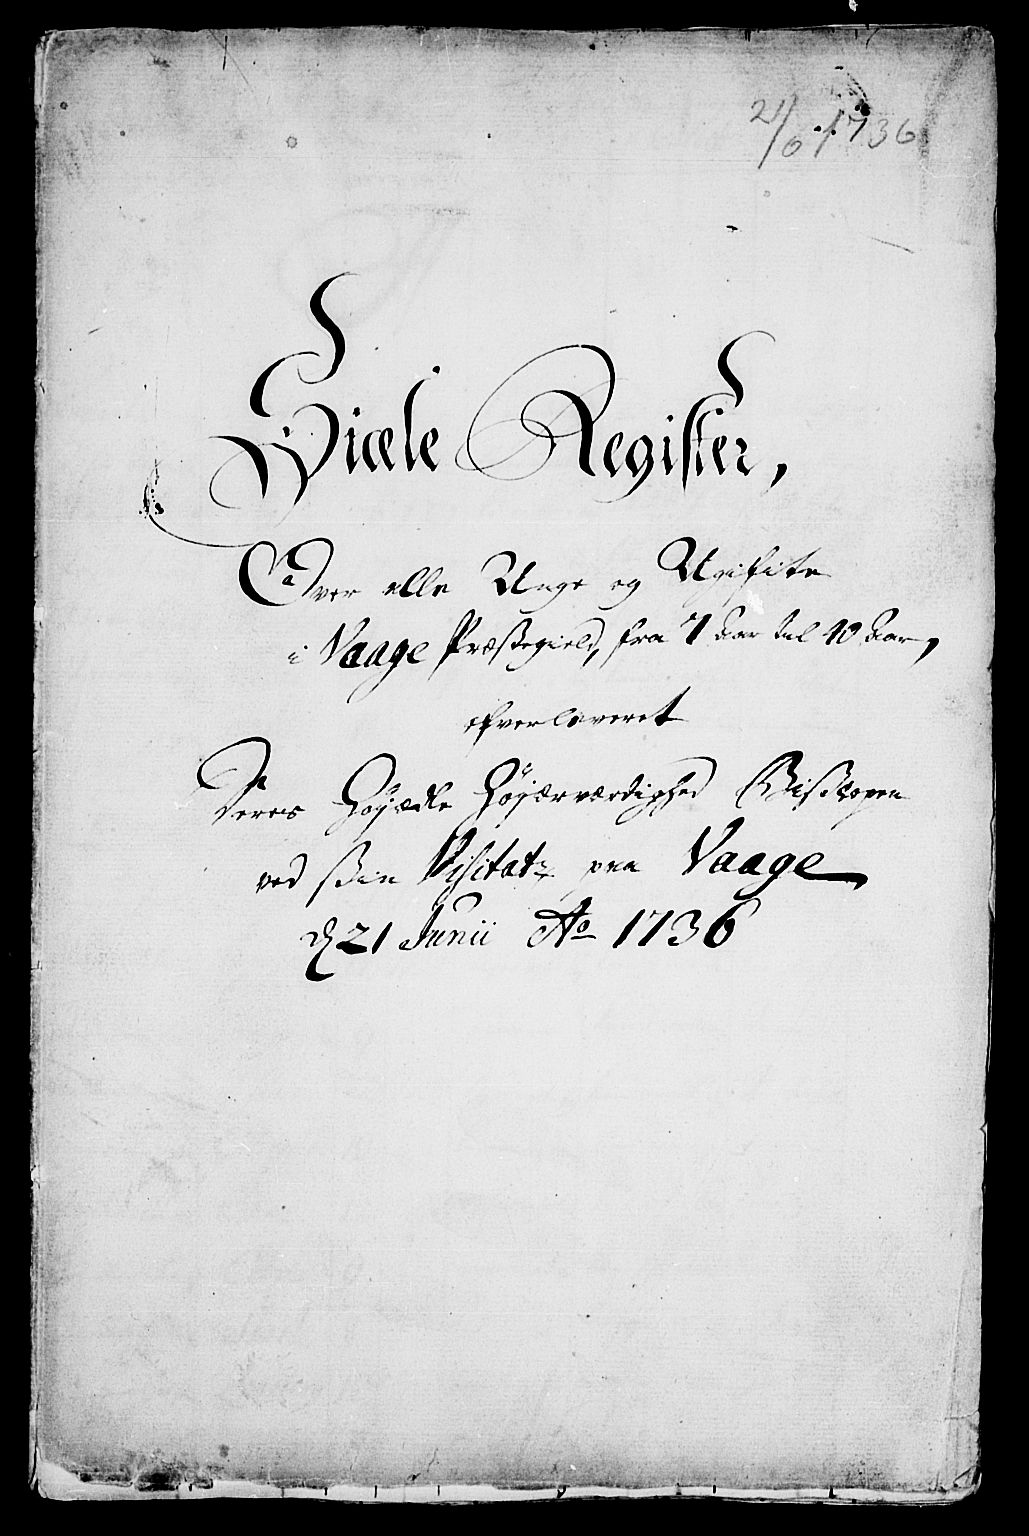 21/6 1736
Siæle Register,
Over alle Unge og Ugifte
i Vaage Præstegield, fra 7 Aar til 40 Aar,
ofverleveret
Deres Høyædle Høyærværdighed Biskopen
ved sin Visitatz paa Vaage
d 21 Junii Ao 1736